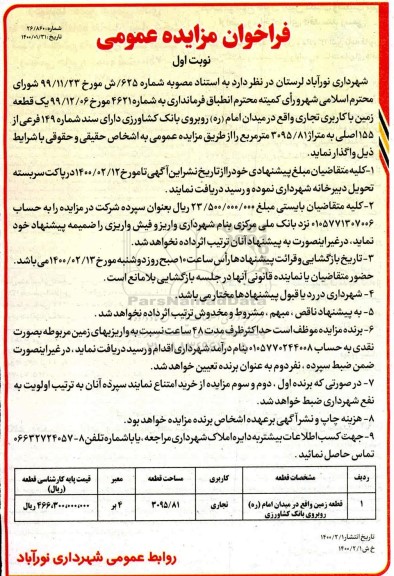 شماره: ۲۶/۸۶۰
تاریخ: ۱۴۰۰/۰۱/۳۱
فراخوان مزایده عمومی
نوبت اول
شهرداری نورآباد لرستان در نظر دارد به استناد مصوبه شماره ۶۲۵/ش مورخ ۹۹/۱۱/۲۳ شورای
محترم اسلامی شهر و رأی کمیته محترم انطباق فرمانداری به شماره ۴۶۲۱ مورخ ۹۹/۱۲/۰۶ یک قطعه
زمین با کاربری تجاری واقع در میدان امام (ره) روبروی بانک کشاورزی دارای سند شماره ۱۴۹ فرعی از
۱۵۵ اصلی به متراژ ۳۰۹۵/۸۱ مترمربع را از طریق مزایده عمومی به اشخاص حقیقی و حقوقی با شرایط
ذیل واگذار نماید.
۱-کلیه متقاضیان مبلغ پیشنهادی خود را از تاریخ نشر این آگهی تا مورخ ۱۴۰۰/۰۲/۱۲ در پاکت سربسته
تحویل دبیرخانه شهرداری نموده و رسید دریافت نمایند.
۲- کلیه متقاضیان بایستی مبلغ ۲۳/۵۰۰/۰۰۰/۰۰۰ ریال بعنوان سپرده شرکت در مزایده را به حساب
۰۱۰۵۷۷۱۳۰۷۰۰۶ نزد بانک ملی مرکزی بنام شهرداری واریز و فیش واریزی را ضمیمه پیشنهاد خود
نماید، در غیر اینصورت به پیشنهاد آنان ترتیب اثر داده نخواهد شد.
۳- تاریخ بازگشایی و قرائت پیشنهادها رأس ساعت ۱۰ صبح روز دوشنبه مورخ ۱۴۰۰/۰۲/۱۳ می باشد.
حضور متقاضیان یا نماینده قانونی آنها در جلسه بازگشایی بلامانع است.
۴- شهرداری در رد یا قبول پیشنهادها مختار می باشد.
۵- به پیشنهاد ناقص، مبهم، مشروط و مخدوش ترتیب اثر داده نخواهد شد.
۶- برنده مزایده موظف است حداکثر ظرف مدت ۴۸ ساعت نسبت به واریزبهای زمین مربوطه بصورت
نقدی به حساب ۰۱۰۵۷۷۰۲۴۴۰۰۸ بنام درآمد شهرداری اقدام و رسید دریافت نماید، در غیر اینصورت
ضمن ضبط سپرده، نفر دوم به عنوان برنده تعیین خواهد شد.
۷- در صورتی که برنده اول، دوم و سوم مزایده از خرید امتناع نمایند سپرده آنان به ترتیب اولویت به
نفع شهرداری ضبط خواهد شد.
۸- هزینه چاپ و نشر آگهی برعهده اشخاص برنده مزایده خواهد بود.
۹- جهت کسب اطلاعات بیشتر به دایره املاک شهرداری مراجعه، یا با شماره تلفن ۸-۰۶۶۳۲۷۲۴۰۵۷
تماس حاصل نمائید.
ردیف مشخصات قطعه کاربری مساحت قطعه معبر قیمت پایه کارشناسی قطعه (ریال)
۱ قطعه زمین واقع در میدان امام (ره) روبروی بانک کشاورزی تجاری ۳۰۹۵/۸۱ ۴ بر ۴۶۶،۳۰۰،۰۰۰،۰۰۰ ریال
تاریخ انتشار ۱۴۰۰/۲/۱
خ ش ۱۴۰۰/۲/۱
روابط عمومی شهرداری نورآباد